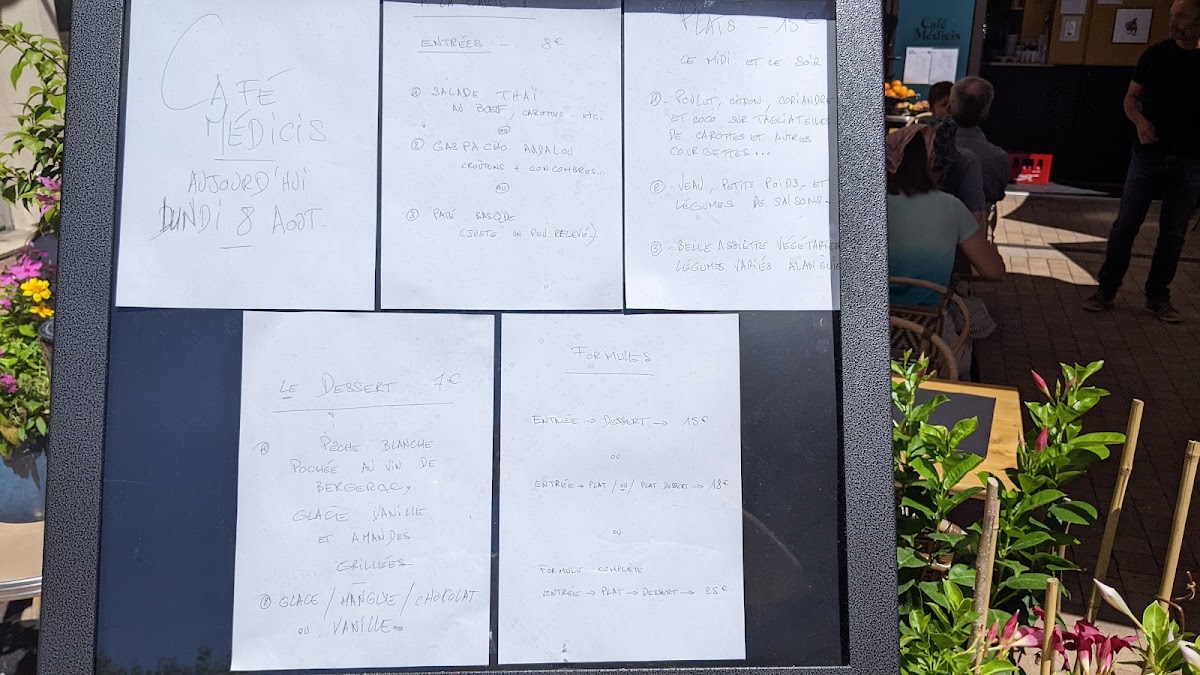 CAFÉ
MÉDICIS
AUJOURD'HUI
LUNDI 8 AOÛT.
A LA CARTE :
ENTRÉES - 8€
① SALADE THAÏ
AU BŒUF, CAROTTES... ETC.
OU
② GASPACHO ANDALOU
CROÛTONS + CONCOMBRES...
OU
③ PATÉ BASQUE
(JUSTE UN PEU RELEVÉ.)
PLATS - 15€
CE MIDI ET LE SOIR
① - POULET, CITRON, CORIANDRE
ET COCO SUR TAGLIATELLES
DE CAROTTES ET AUTRES
COURGETTES...
② - VEAU, PETITS POIDS, ET
LÉGUMES DE SAISONS.
③ - BELLE ASSIETTE VÉGÉTARIEN
LÉGUMES VARIÉS
LE DESSERT 7€
① PÊCHE BLANCHE
POCHÉE AU VIN DE
BERGERAC,
GLACE VANILLE
ET AMANDES
GRILLÉES
② GLACE / MANGUE / CHOKOLAT
OU VANILLE
FORMULES
ENTRÉE → DESSERT → 15€
OU
ENTRÉE → PLAT / OU / PLAT DESSERT → 18€
OU
FORMULE COMPLÈTE
ENTRÉE → PLAT → DESSERT → 25€
Café
Médicis